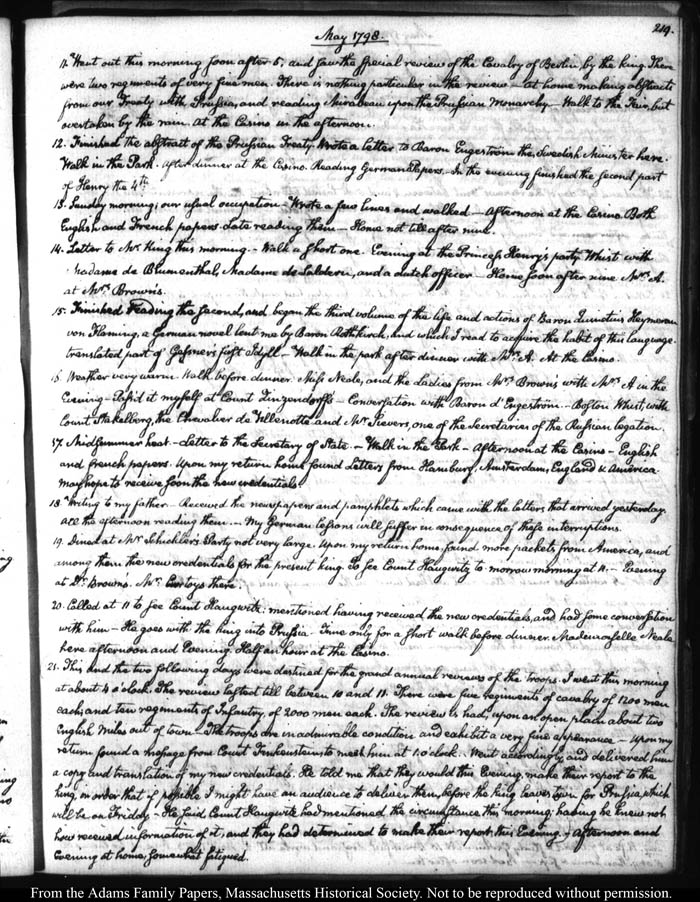 219.
May 1798.
11. Went out this morning soon after 5, and saw the special review of the Cavalry of Berlin by the king. There
were two regiments of very fine men. There is nothing particular in the review — At home making abstracts
from our Treaty with Prussia, and reading Mirabeau upon the Prussian Monarchy — Walk to the but
overtaken by the rain. At the Casino in the afternoon.
12. Finished the abstract of the Prussian Treaty. Wrote a letter to Baron Engeström the Swedish Minister here.
Walk in the Park. After dinner at the Casino. Reading German Papers — In the evening finished the second part
of Henry the 4th
13. Sunday morning; our usual occupation — Wrote a few lines and walked — Afternoon at the Casino. Both
English and French papers. Late reading them — Home not till after nine.
14. Letter to Mr. King this morning. — Walk a short one. Evening at the Princess Henry's party. Whist with
Madame de Blumenthal, Madame de and a dutch officer — Home soon after nine. Mrs. A.
at Mrs. Brown's.
15. Finished reading the second, and began the third volume of the life and actions of Baron Heymeran
von Fleming, a German novel lent me by Baron Rothkirch, and which I read to acquire the habit of this language.
translated part of Gessner's first Idyll — Walk in the park after dinner with Mrs. A. At the Casino.
16. Weather very warm. Walk before dinner. Miss Neale, and the Ladies from Mrs. Brown's with Mrs. A in the
Evening. Pass'd it myself at Count Zinzendorff's — Conversation with Baron d'Engeström — Boston Whist, with
Count Stakelberg, the Chevalier de and Mr. Sievers, one of the Secretaries of the Russian legation.
17. Midsummer heat. — Letter to the Secretary of State. — Walk in the Park — Afternoon at the Casino — English
and french papers. Upon my return home found Letters from Hamburg, Amsterdam, England & America.
may hope to receive soon the new credentials.
18. Writing to my father — Received the newspapers and pamphlets which came with the letters that arrived yesterday.
All the afternoon reading them — My German lessons will suffer in consequence of these interruptions.
19. Dined at Mr. Schickler's. Party not very large. Upon my return home found more packets from America, and
among them the new credentials for the present king. To see Count Haugwitz to-morrow morning at 11. — Evening
at Dr. Brown's. Mr. there.
20. Called at 11 to see Count Haugwitz: mentioned having received the new credentials, and had some conversation
with him — He goes with the king into Prussia. Time only for a short walk before dinner. Mademoiselle Neale
here afternoon and Evening. Half an hour at the Casino.
21. This and the two following days were destined for the grand annual reviews of the troops. I went this morning
at about 4 o'clock. The review lasted till between 10 and 11. There were five regiments of cavalry of 1200 men
each, and ten regiments of Infantry, of 2000 men each. The review is had, upon an open plain about two
English Miles out of town — The troops are in admirable condition and exhibit a very fine appearance — Upon my
return found a message from Count Finkenstein to meet him at 1. o'clock. Went accordingly, and delivered him
a copy and translation of my new credentials. He told me that they would this Evening, make their report to the
king, in order that if possible I might have an audience to deliver them, before the king leaves town for Prussia, which
will be on Friday — He said Count Haugwitz had mentioned the circumstance this morning; having he knew not
how received information of it; and they had determined to make their report this Evening. — Afternoon and
Evening at home, somewhat fatigued.
From the Adams Family Papers, Massachusetts Historical Society. Not to be reproduced without permission.